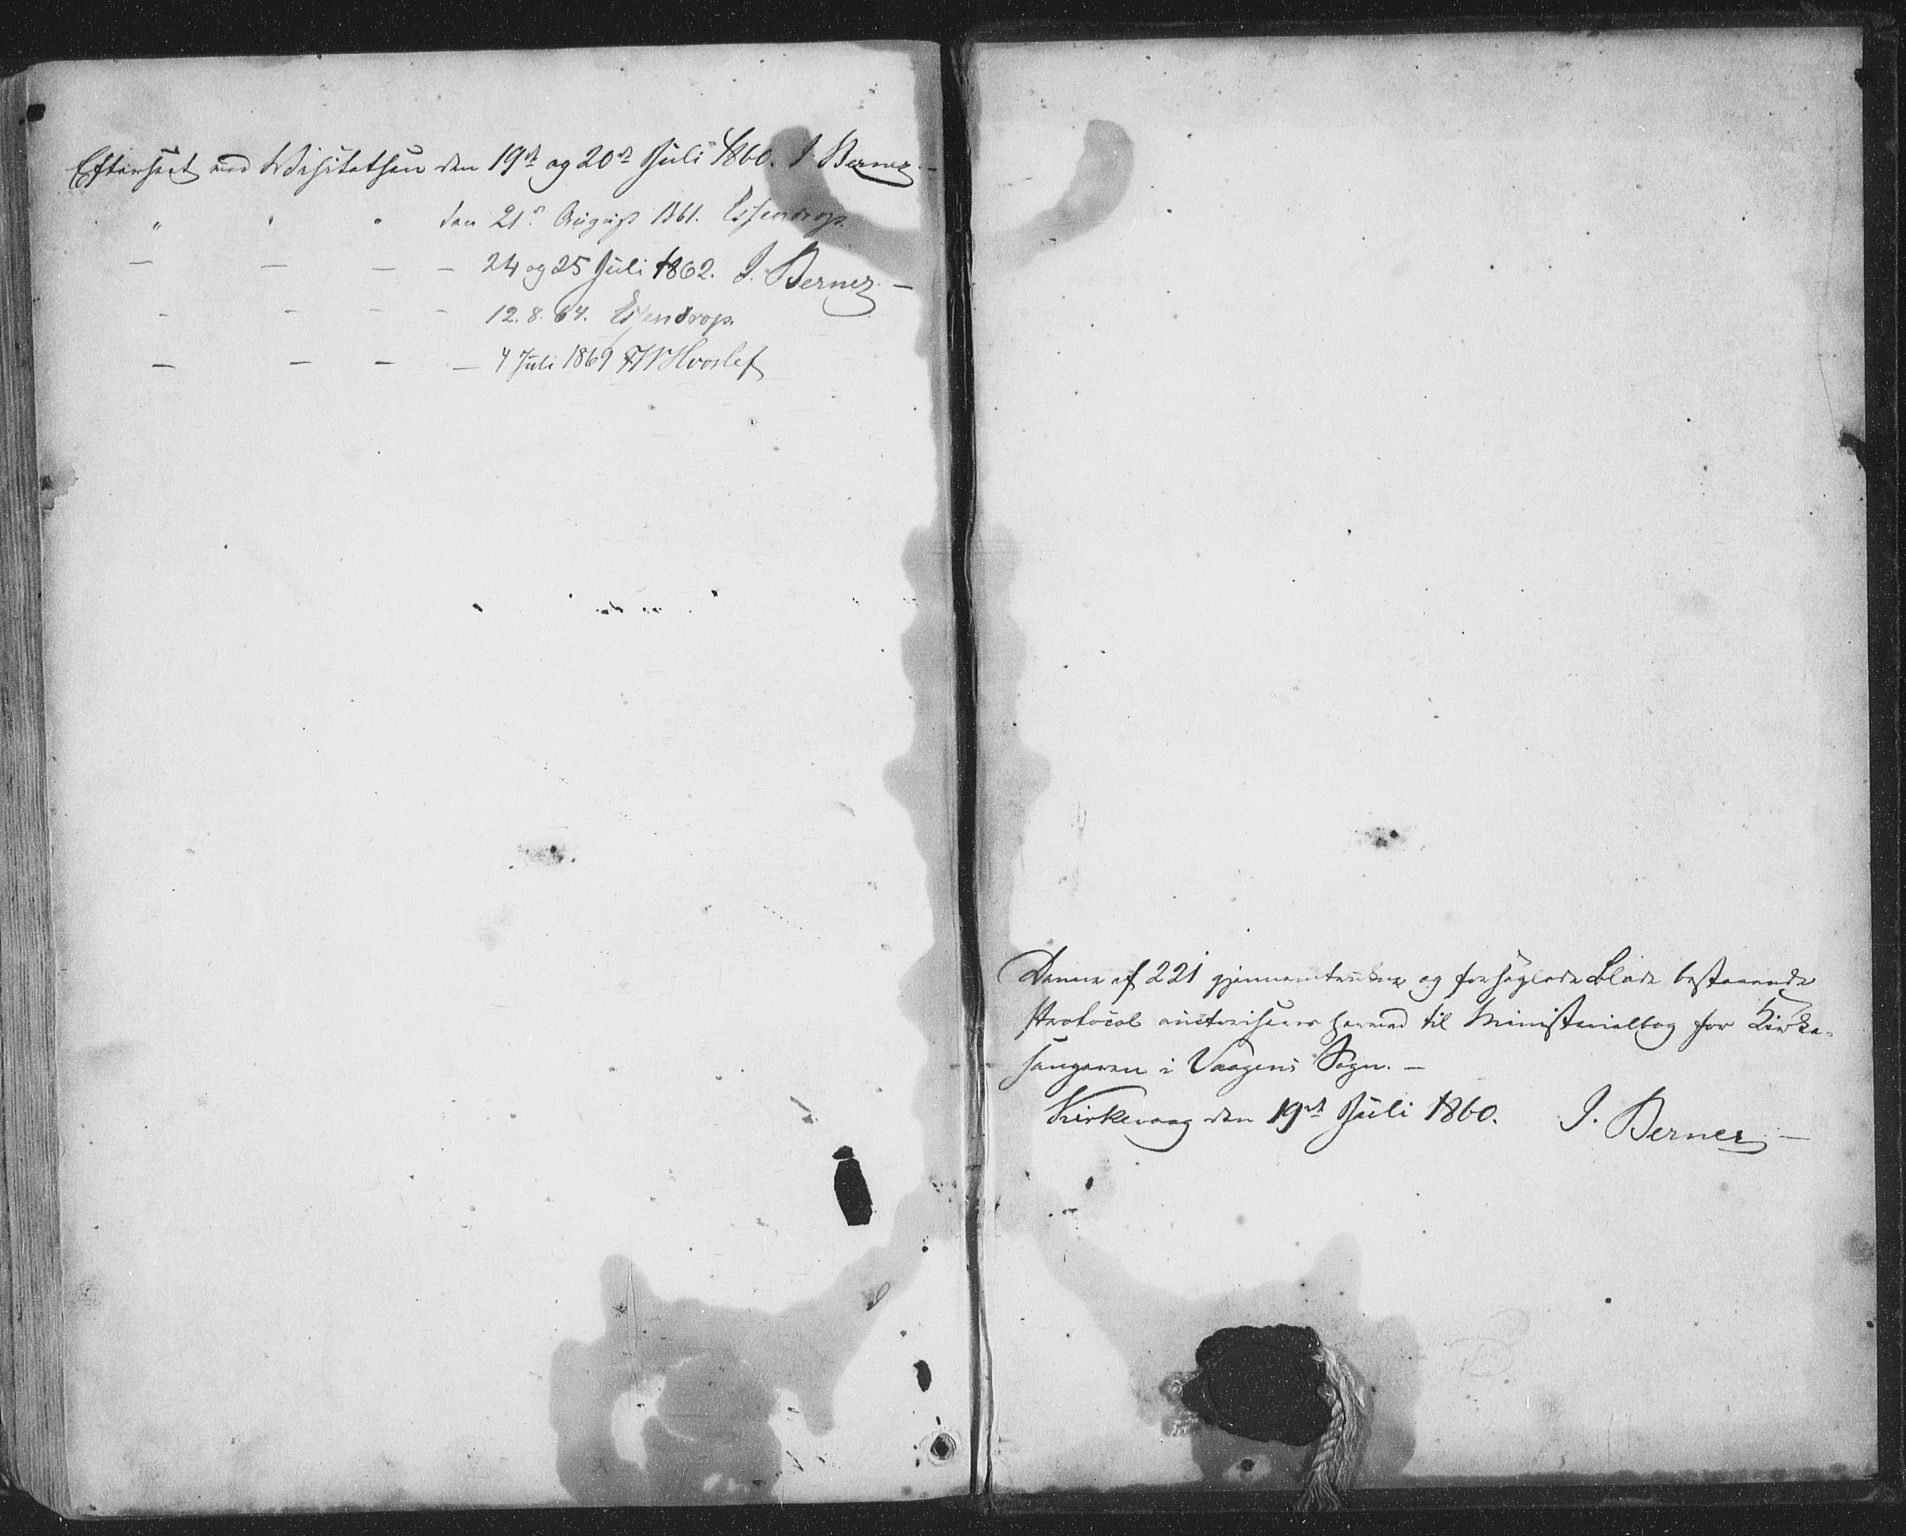 Efterseet ved Visitatsen den 19de og 20de Juli 1860. J. Berner. —
" " " den 21de August 1861. Essendrop.
— — — — 24 og 25 Juli 1862. J. Berner. —
— — — — 12. 8. 64. Essendrop.
— — — — 4 Juli 1869 FW Hvoslef
Denne af 221 gjennemtrukne og forseglede Blade bestaaende
Protocol auctoriseres herved til Ministerialbog for Kirke-
sangeren i Vaagens Sogn. —
Kirkevaag den 19de Juli 1860. J. Berner. —